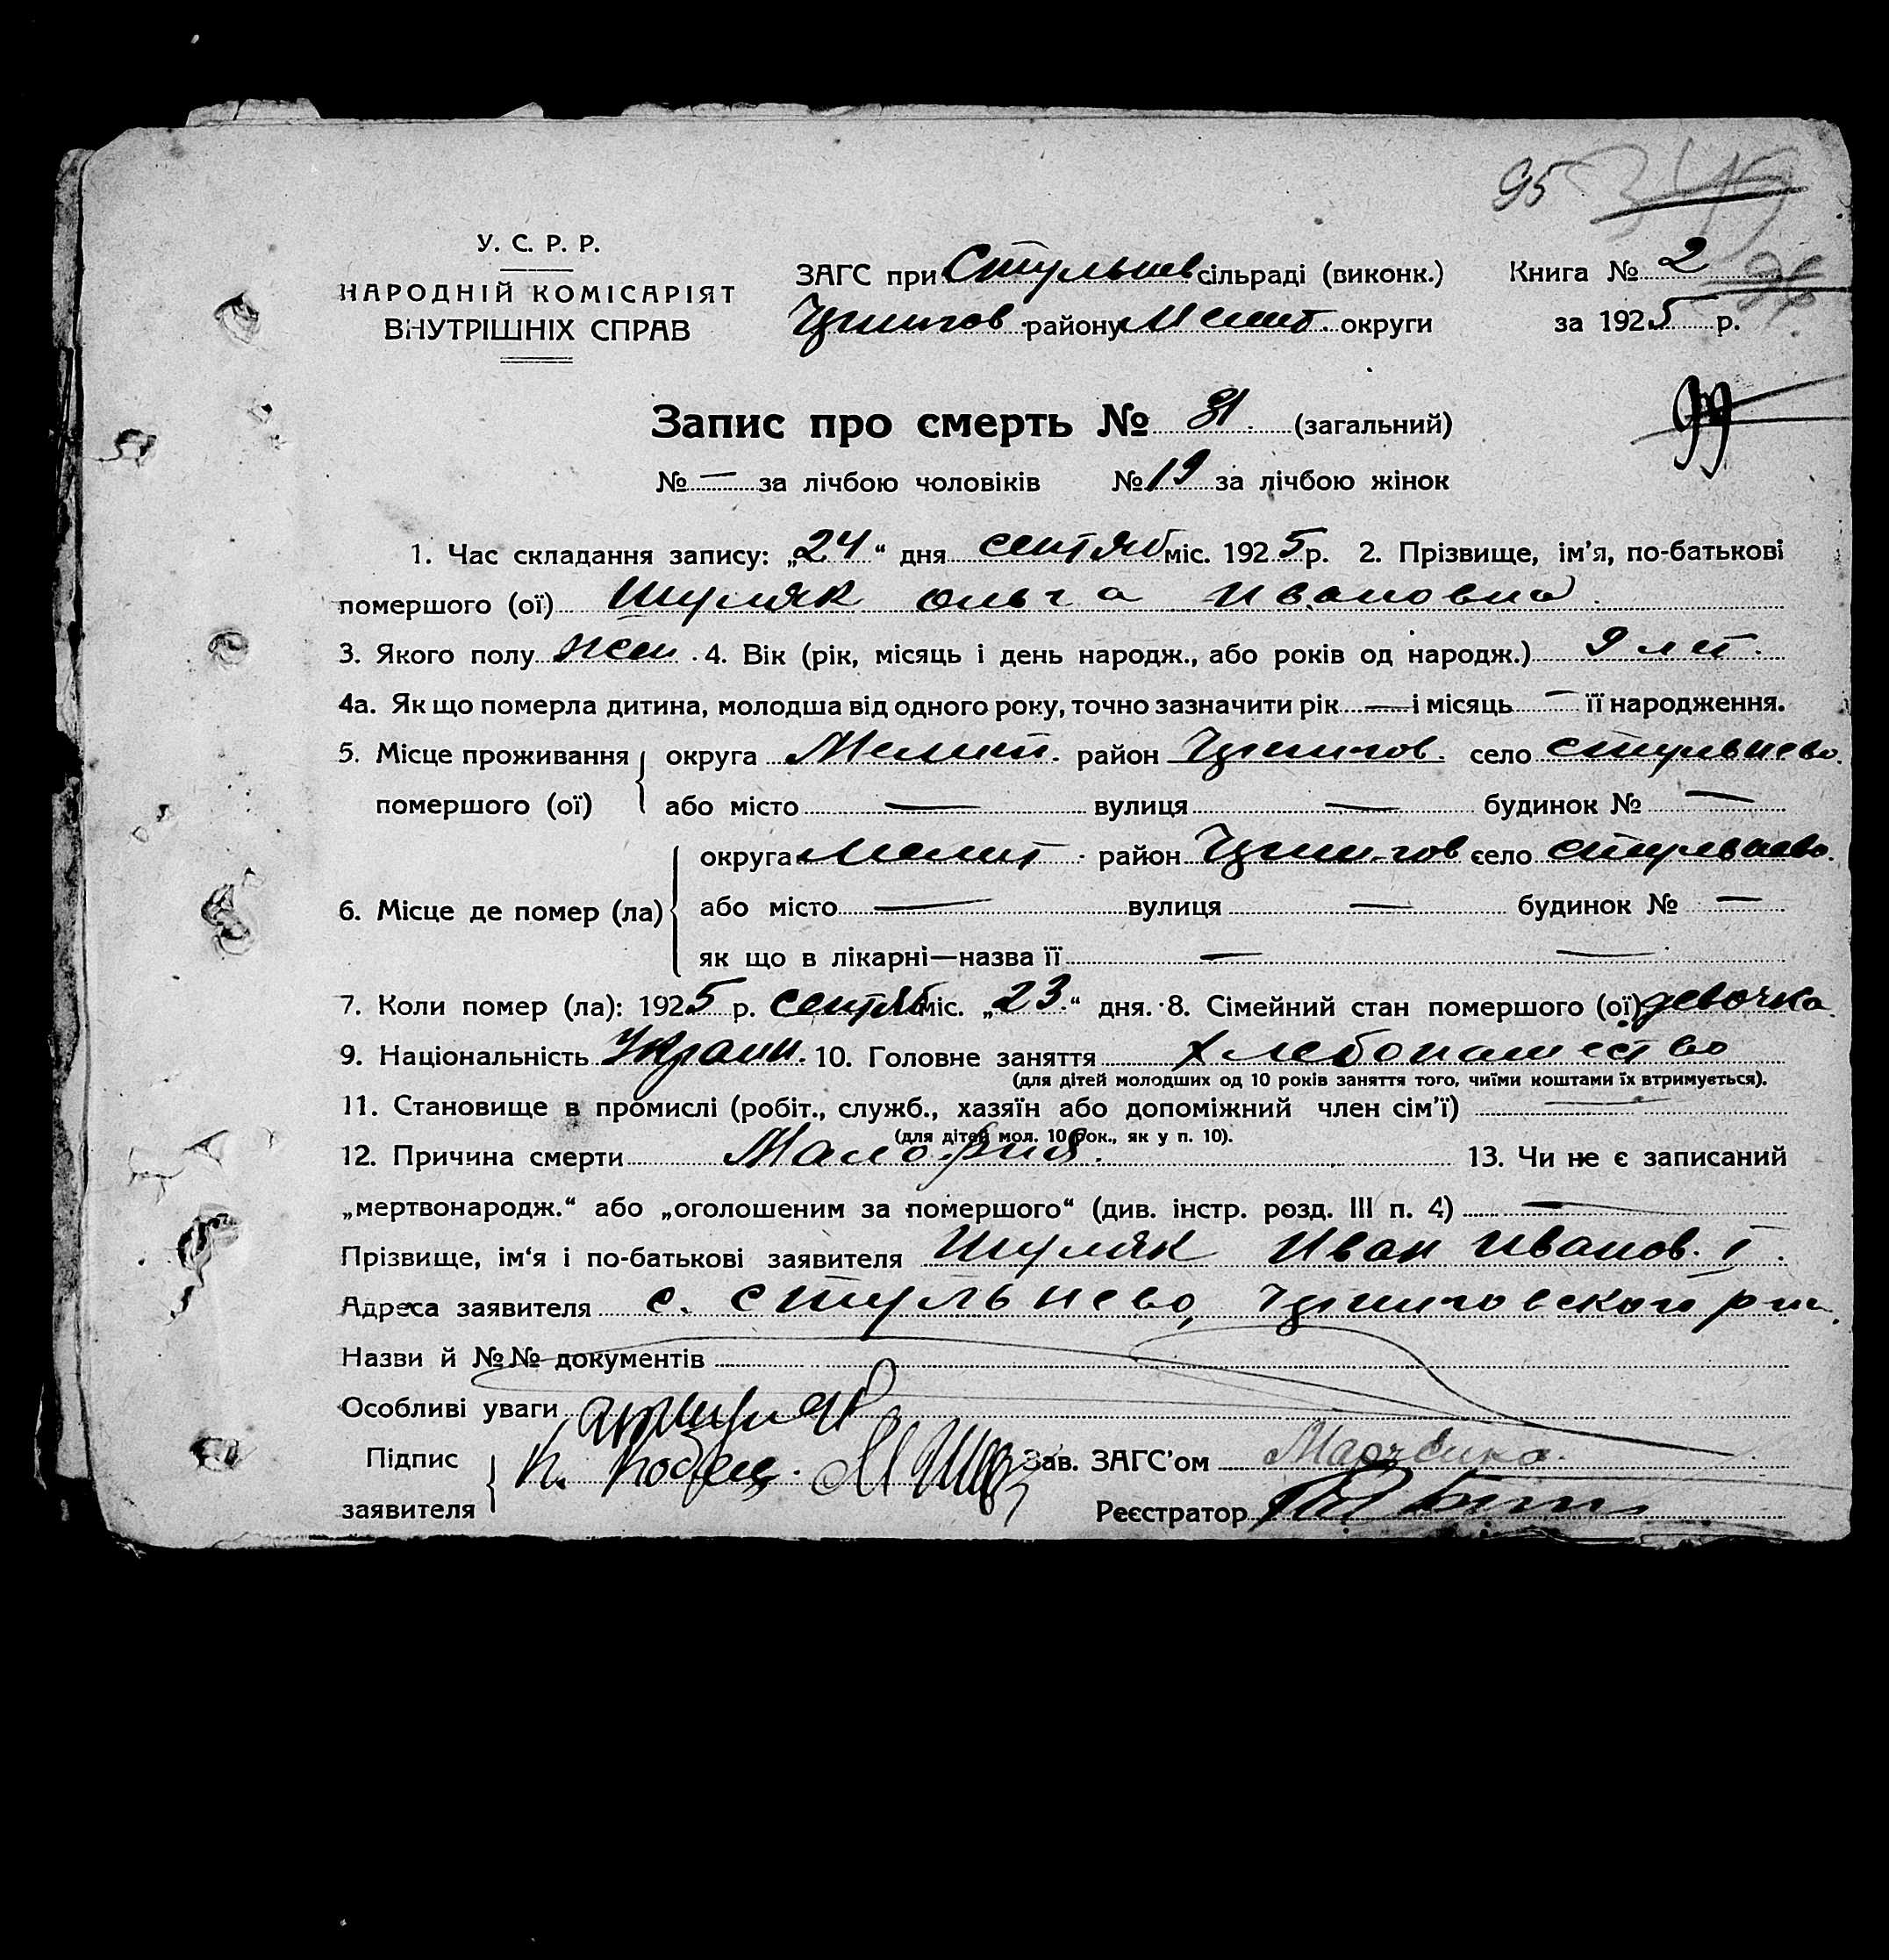 95 349
У. С. Р. Р.
НАРОДНІЙ КОМІСАРІЯТ
ВНУТРІШНІХ СПРАВ
ЗАГС при Стульнев сільраді (виконк.) Книга № 2
Цреигов району Мелит. округи за 1925 р.
99
Запис про смерть № 31. (загальний)
№ — за лічбою чоловіків № 19 за лічбою жінок
1. Час складання запису: „24“ дня сентяб міс. 1925 р. 2. Прізвище, ім’я, по-батькові
помершого (ої) Шуляк Ольга Ивановна.
3. Якого полу жен. 4. Вік (рік, місяць і день народж., або років од народж.) 9 лет.
4а. Як що померла дитина, молодша від одного року, точно зазначити рік — і місяць — її народження.
5. Місце проживання помершого (ої) округа Мелит. район село Стульнево.
або місто — вулиця — будинок № —
6. Місце де помер (ла) округа Мелит. район село Стульнево.
або місто — вулиця — будинок № —
як що в лікарні—назва її — —
7. Коли помер (ла): 1925 р. сентяб міс. „23“ дня. 8. Сімейний стан помершого (ої) девочка.
9. Національність Украин. 10. Головне заняття хлебопашество
(для дітей молодших од 10 років заняття того, чиїми коштами їх втримується).
11. Становище в промислі (робіт., служб., хазяїн або допоміжний член сім’ї) —
(для дітей мол. 10 рок., як у п. 10).
12. Причина смерти 13. Чи не є записаний
„мертвонародж.“ або „оголошеним за помершого“ (див. інстр. розд. III п. 4) —
Прізвище, ім‘я і по-батькові заявителя Шуляк Иван Иванов. I.
Адреса заявителя с. Стульнево,
Назви й №№ документів
Особливі уваги
Підпис заявителя
Зав. ЗАГС’ом
Реєстратор